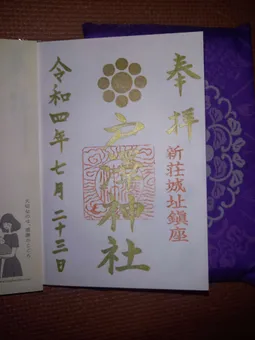 奉拝
新荘城址鎮座
戸澤神社
令和四年七月二十三日